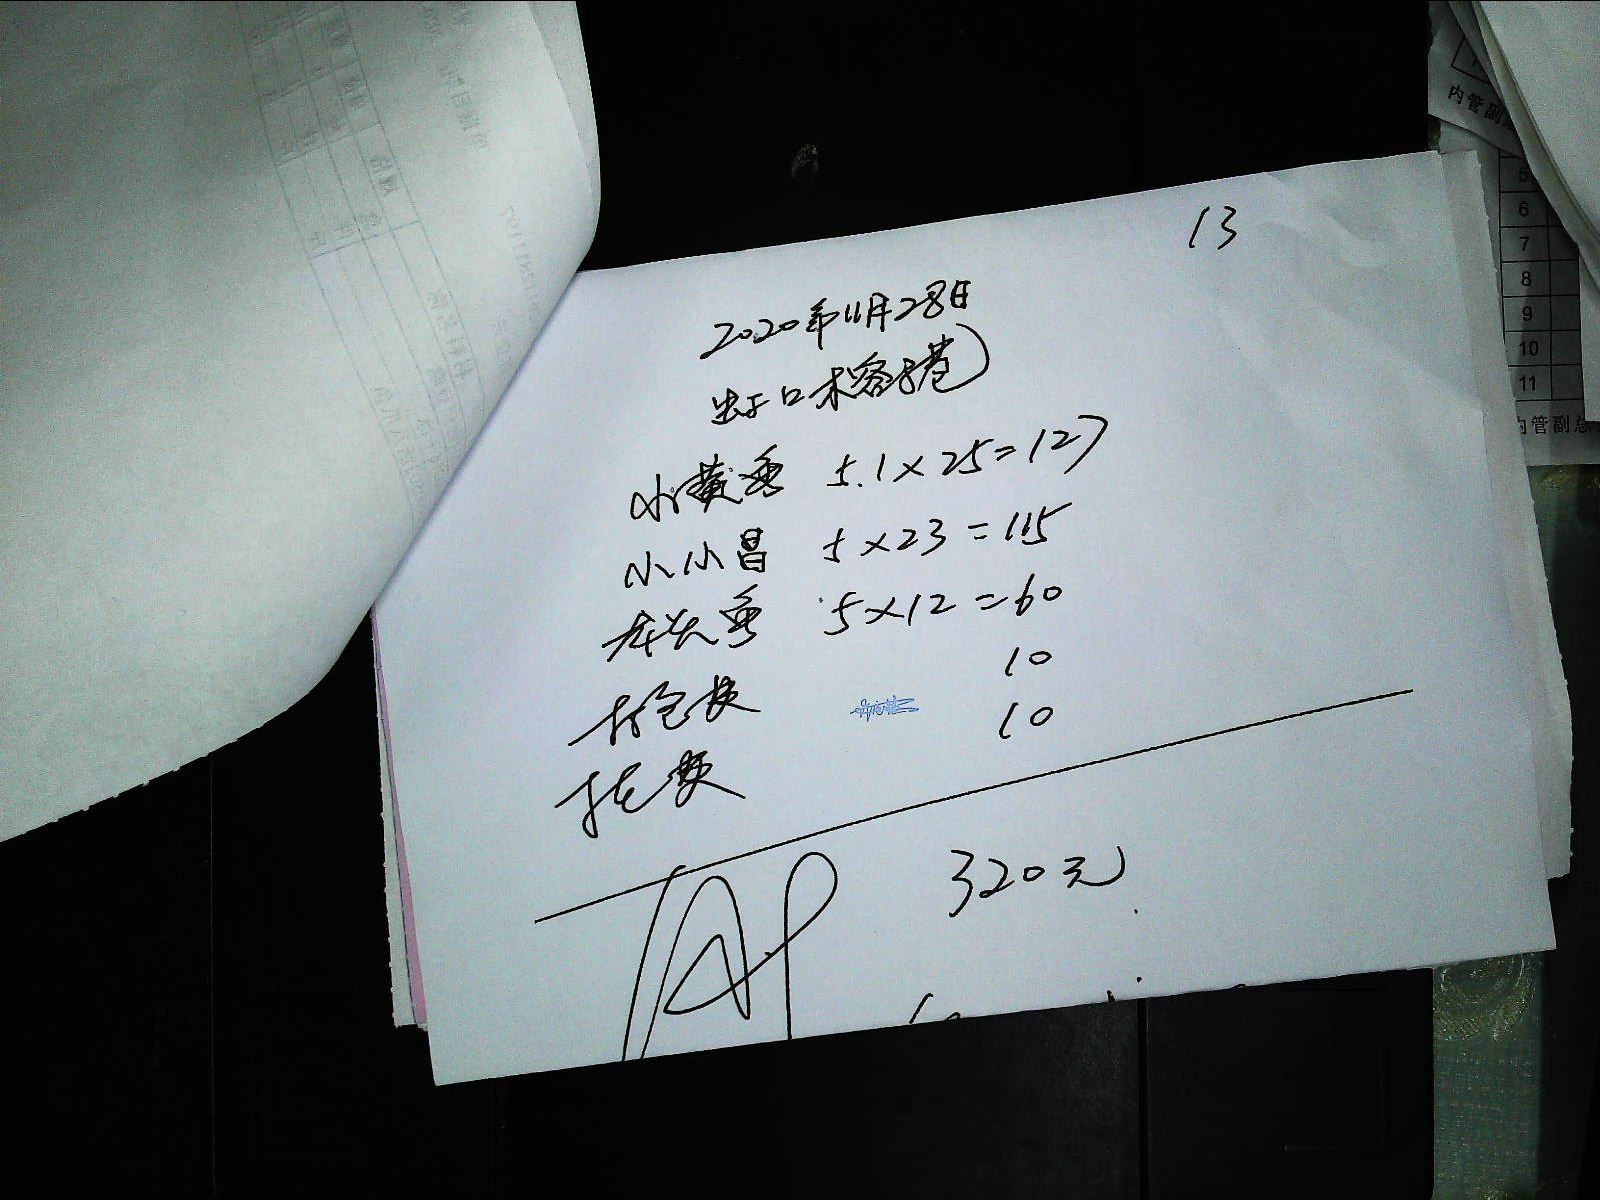 13
2020年11月28日
口木
小黄鱼 5.1×25=127
小小昌 5×23=115
龙头鱼 5×12=60
打包费 10
托费 10
320元
内管副
5
6
7
8
9
10
11
内管副总